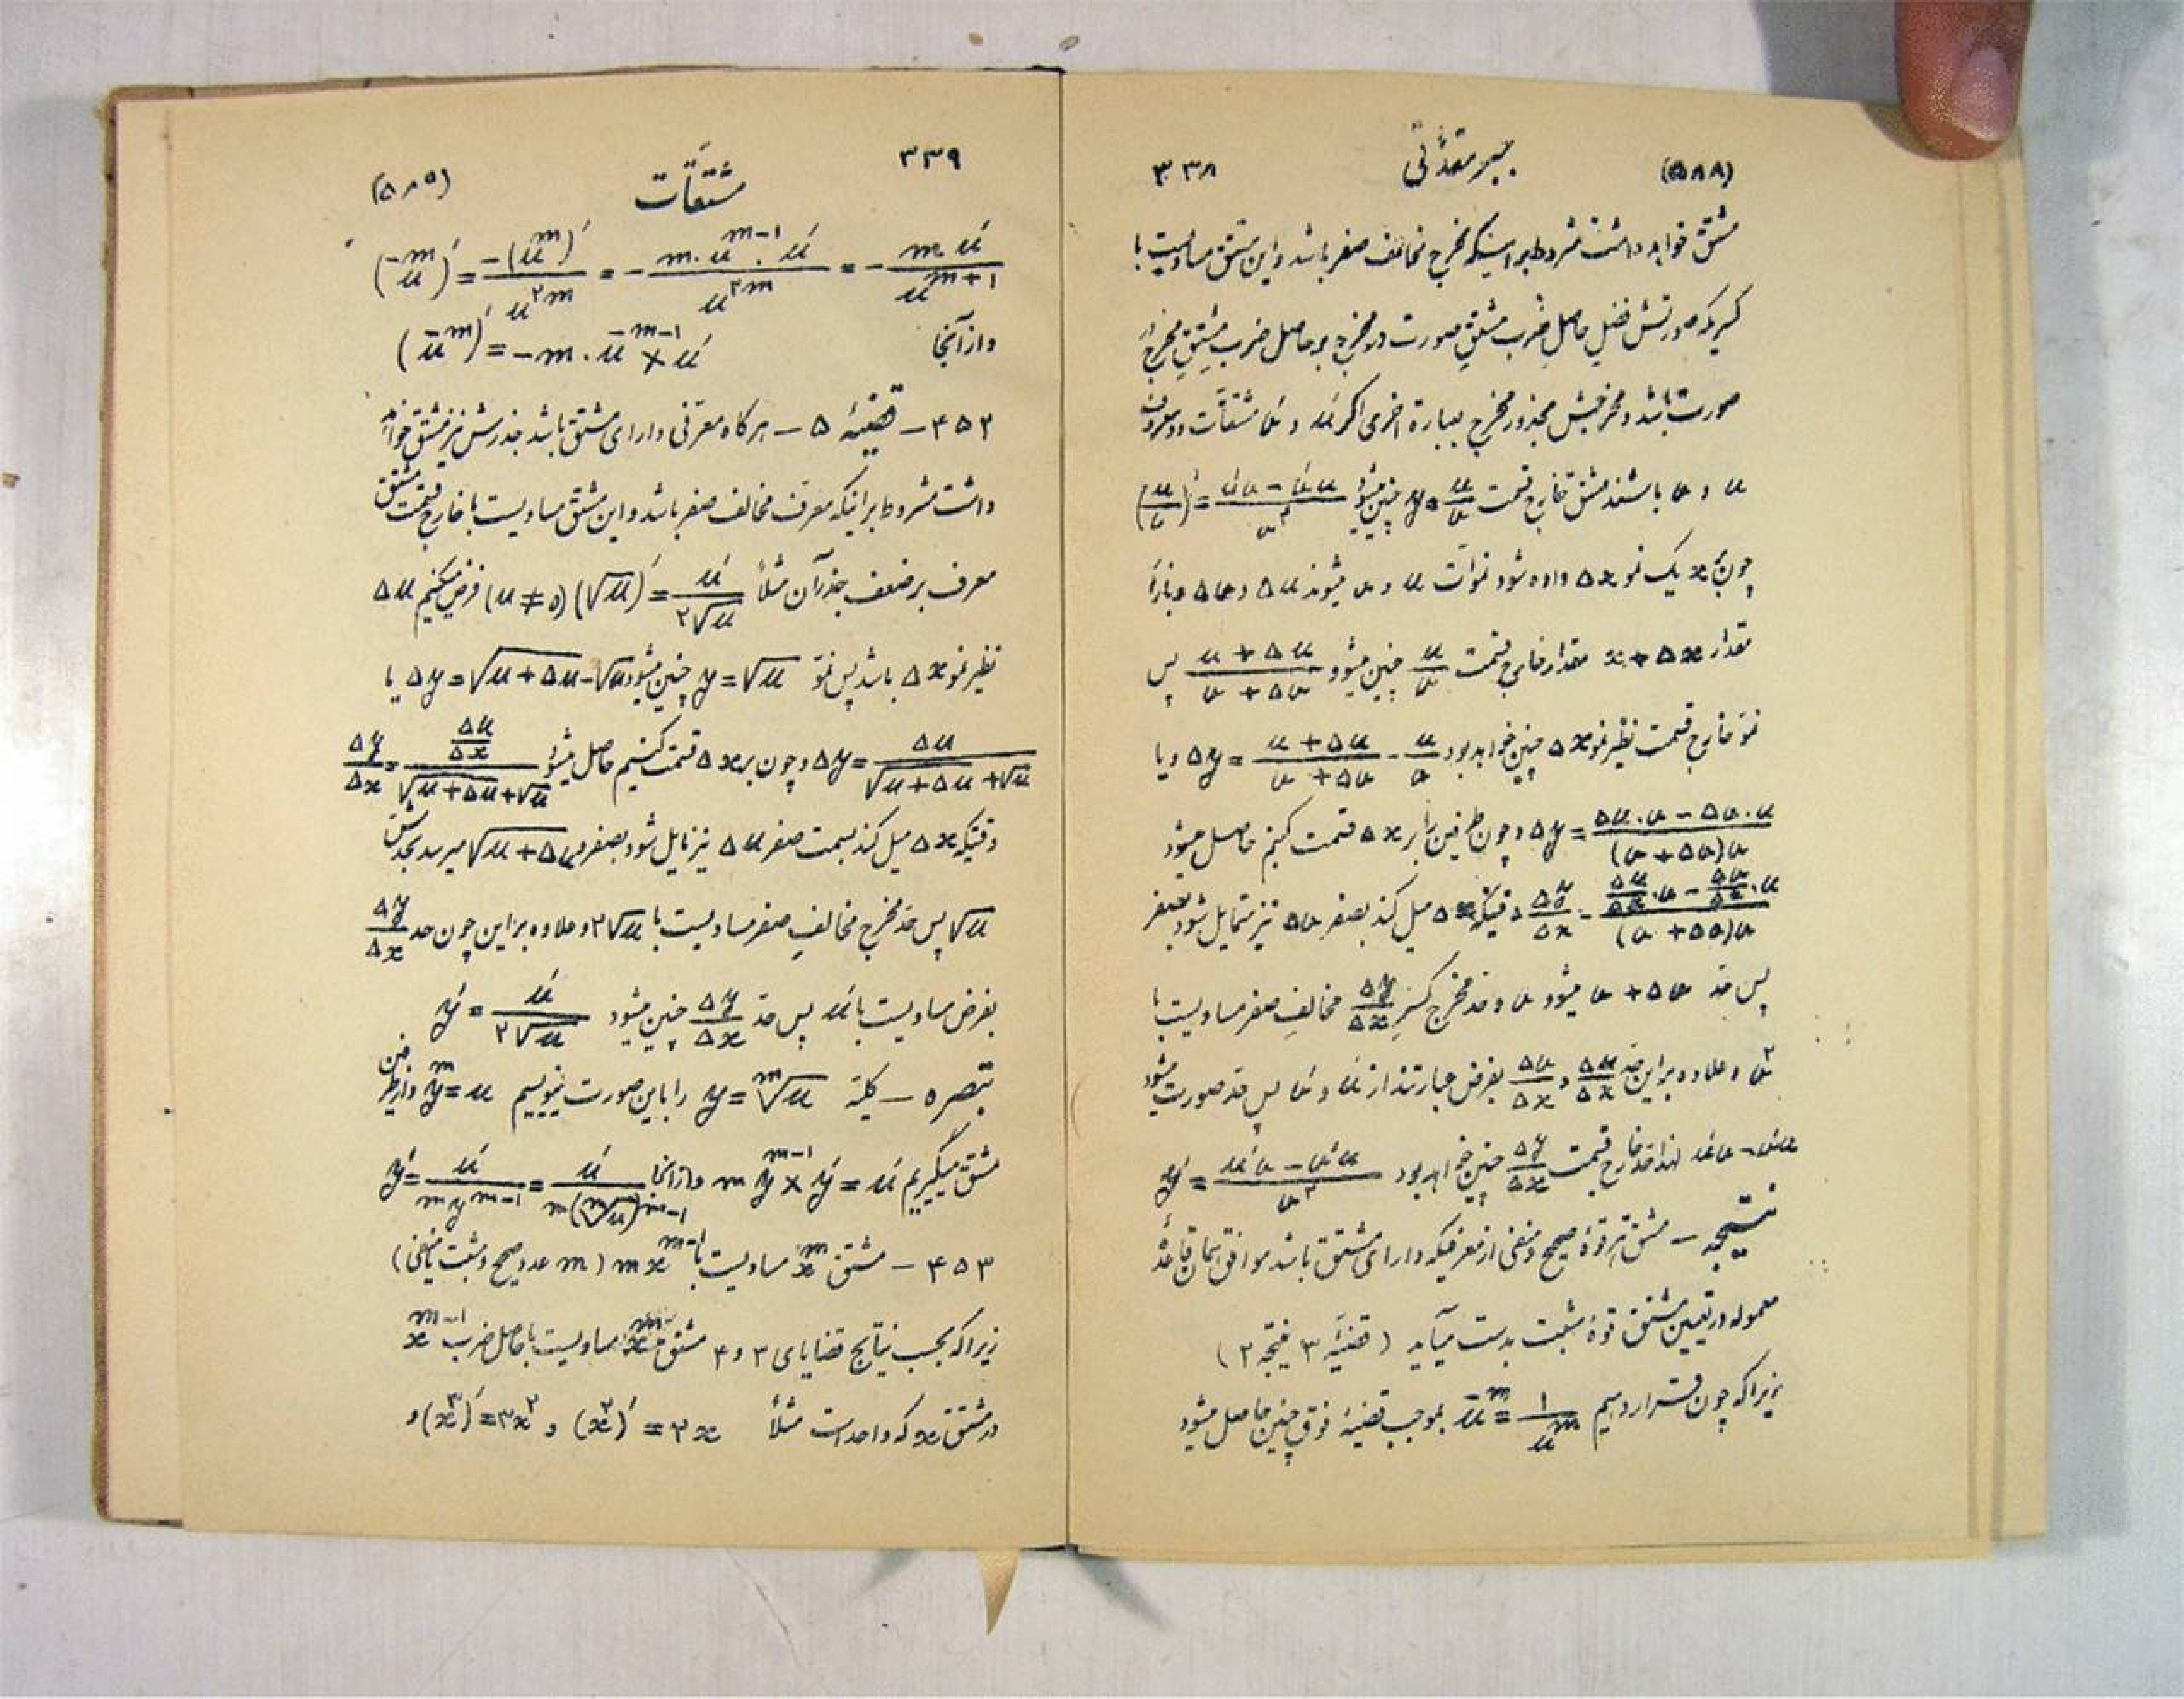 ۳۳۸ جبر مقدماتی (۵۸۸)
مشتق خواهد داشت مشروط بر اینکه مخرج مخالف صفر باشد و این مشتق مساویست با
کسریکه صورتش فضل حاصل ضرب مشتق صورت در مخرج بر حاصل ضرب مشتق مخرج در
صورت باشد و مخرجش مجذور مخرج بعبارة اخری اگر u′ و v′ مشتقات دو معرف
u و v باشند مشتق خارج قسمت y = u/v چنین میشود (u/v)′ = (u′v − v′u)/v²
چون به x یک نمو Δx داده شود نموات u و v میشوند Δu و Δv و بازاء
مقدار x + Δx مقدار خارج قسمت u/v چنین میشود (u + Δu)/(v + Δv) پس
نمو خارج قسمت نظیر نمو Δx چنین خواهد بود Δy = (u + Δu)/(v + Δv) − u/v و یا
Δy = (Δu.v − Δv.u)/((v + Δv)v) و چون طرفین را بر Δx قسمت کنیم حاصل میشود
Δy/Δx = (Δu/Δx.v − Δv/Δx.u)/((v + Δv)v) وقتیکه Δx میل کند بصفر Δv نیز متمایل شود بصفر
پس حد v + Δv میشود v و حد مخرج کسر Δy/Δx مخالف صفر مساویست با
v² و علاوه بر این حد Δu/Δx و Δv/Δx بفرض عبارتند از u′ و v′ پس حد صورت میشود
u′v − v′u لهذا حد خارج قسمت Δy/Δx چنین خواهد بود y′ = (u′v − v′u)/v²
نتیجه – مشتق هر قوهٔ صحیح و منفی از معرفیکه دارای مشتق باشد موافق همان قاعدهٔ
معموله در تعیین مشتق قوهٔ مثبت بدست میآید (قضیهٔ ۳ نتیجه ۲)
زیرا که چون قرار دهیم u^−m = ۱/u^m بموجب قضیهٔ فوق چنین حاصل میشود
۳۳۹ مشتقات (۵۸۵)
(u^−m)′ = −(u^m)′/u^۲m = −m.u^m−۱.u′/u^۲m = −m u′/u^m+۱
و از آنجا (u^−m)′ = −m.u^−m−۱ × u′
۴۵۲ – قضیهٔ ۵ – هرگاه معرفی دارای مشتق باشد جذرش نیز مشتق خواهد
داشت مشروط بر اینکه معرف مخالف صفر باشد و این مشتق مساویست با خارج قسمت مشتق
معرف بر ضعف جذر آن مثلاً (√u)′ = u′/۲√u (u ≠ ۰) فرض میکنیم Δu
نظیر نمو Δx باشد پس نمو y = √u چنین میشود Δy = √u + Δu − √u یا
Δy = Δu/(√u + Δu + √u) و چون بر Δx قسمت کنیم حاصل میشود Δy/Δx = (Δu/Δx)/(√u + Δu + √u)
وقتیکه Δx میل کند بسمت صفر Δu نیز مایل شود بصفر و √u + Δu میرسد بحدش
√u پس حد مخرج مخالف صفر مساویست با ۲√u و علاوه بر این چون حد Δy/Δx
بفرض مساویست با u′ پس حد Δy/Δx چنین میشود y′ = u′/۲√u
تبصره – کلیة y = ᵐ√u را باین صورت بنویسیم y^m = u و از طرفین
مشتق میگیریم m y^m−۱ × y′ = u′ و از آنجا y′ = u′/m y^m−۱ = u′/m(ᵐ√u)^m−۱
۴۵۳ – مشتق x^m مساویست با m x^m−۱ (m عدد صحیح و مثبت یا منفی)
زیرا که بحسب نتایج قضایای ۳ و ۴ مشتق x^m مساویست با حاصل ضرب x^m−۱
در مشتق x که واحد است مثلاً (x²)′ = ۲x و (x³)′ = ۳x² و